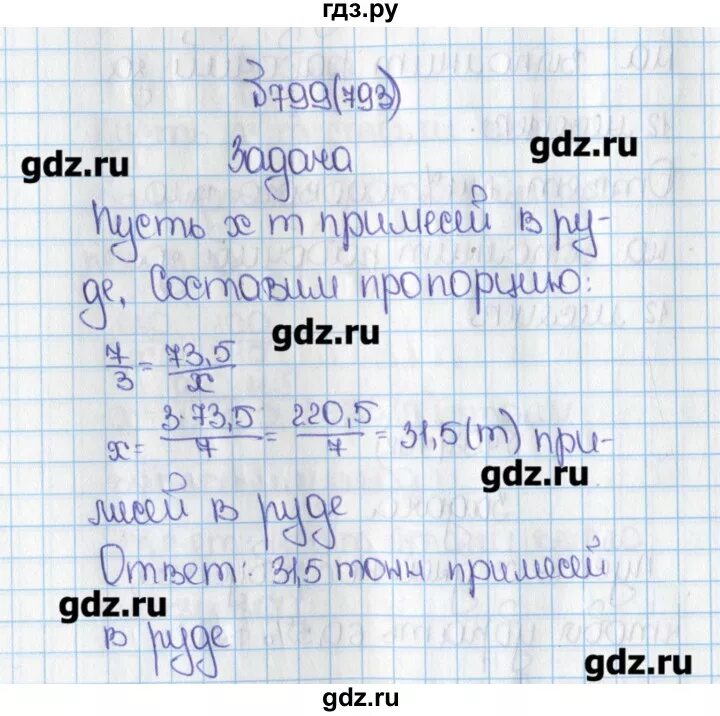 гдз.ру
З799(793)
gdz.ru
Задача
gdz.ru
Пусть x т примесей в ру-
де. Составим пропорцию:
gdz.ru
7/3 = 73,5/x
x = 3·73,5/7 = 220,5/7 = 31,5(т) при-
gdz.ru
месей в руде
Ответ: 31,5 тонн примесей
gdz.ru
в руде
gdz.ru
gdz.ru